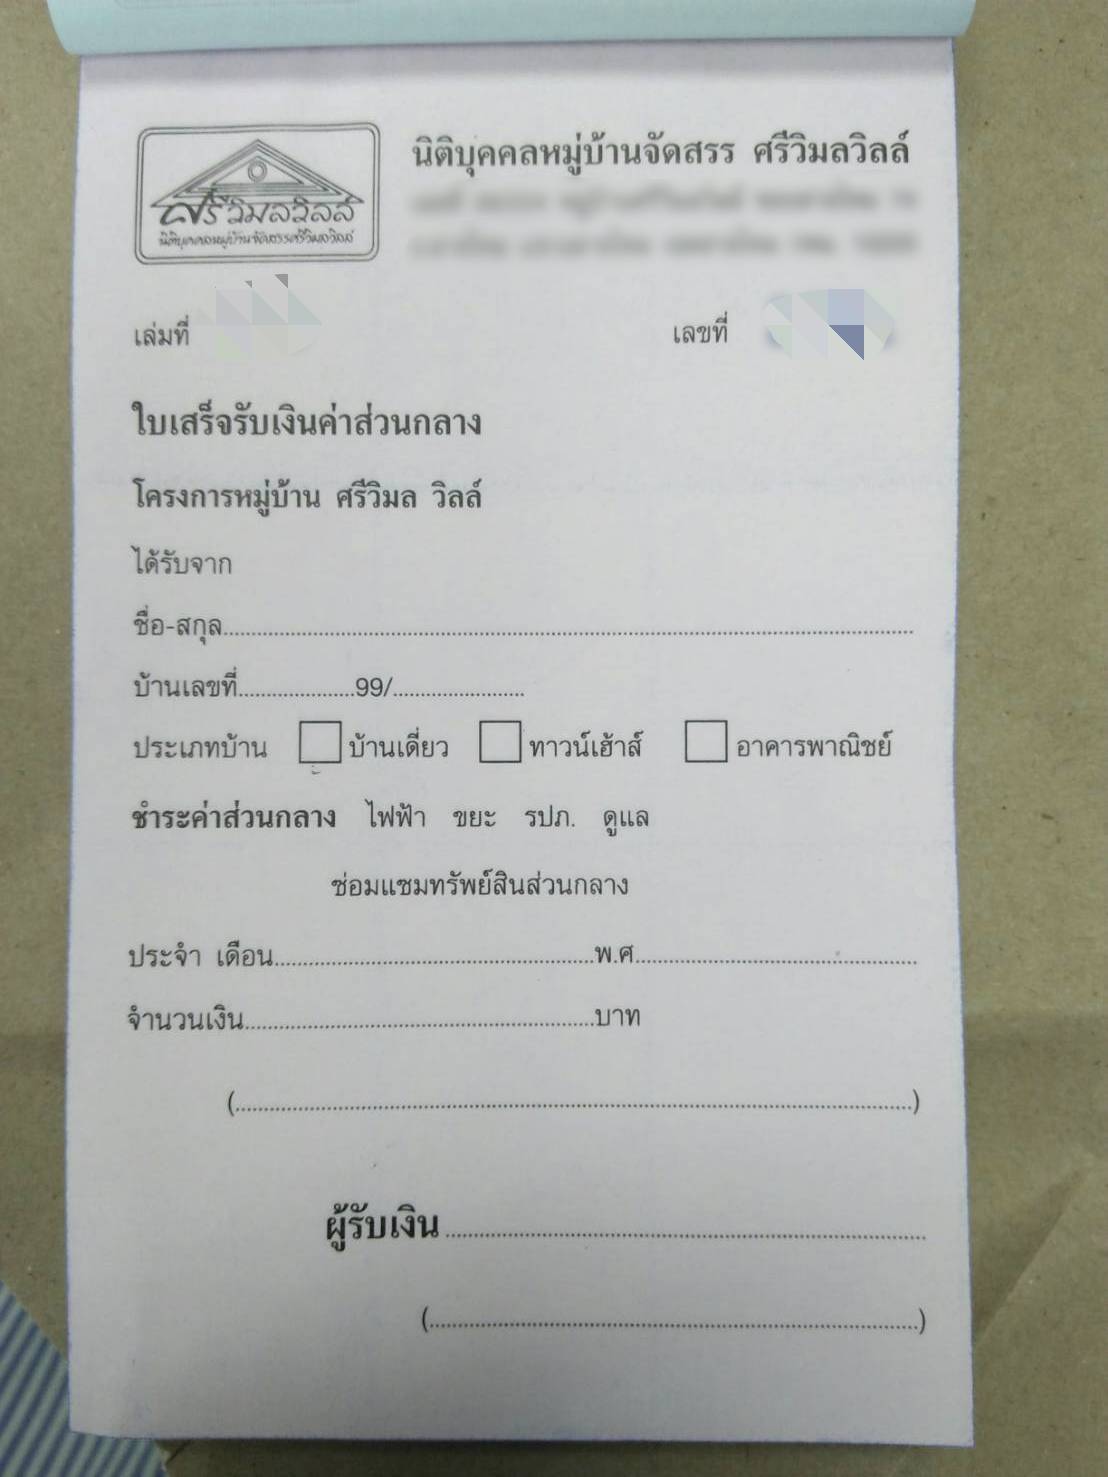 ศรีวิมลวิลล์
นิติบุคคลหมู่บ้านจัดสรรศรีวิมลวิลล์
นิติบุคคลหมู่บ้านจัดสรร ศรีวิมลวิลล์
เล่มที่ เลขที่
ใบเสร็จรับเงินค่าส่วนกลาง
โครงการหมู่บ้าน ศรีวิมล วิลล์
ได้รับจาก
ชื่อ-สกุล
บ้านเลขที่....................99/.......................
ประเภทบ้าน บ้านเดี่ยว ทาวน์เฮ้าส์ อาคารพาณิชย์
ชำระค่าส่วนกลาง ไฟฟ้า ขยะ รปภ. ดูแล
ซ่อมแซมทรัพย์สินส่วนกลาง
ประจำ เดือน....................พ.ศ....................
จำนวนเงิน....................บาท
(....................)
ผู้รับเงิน....................
(....................)